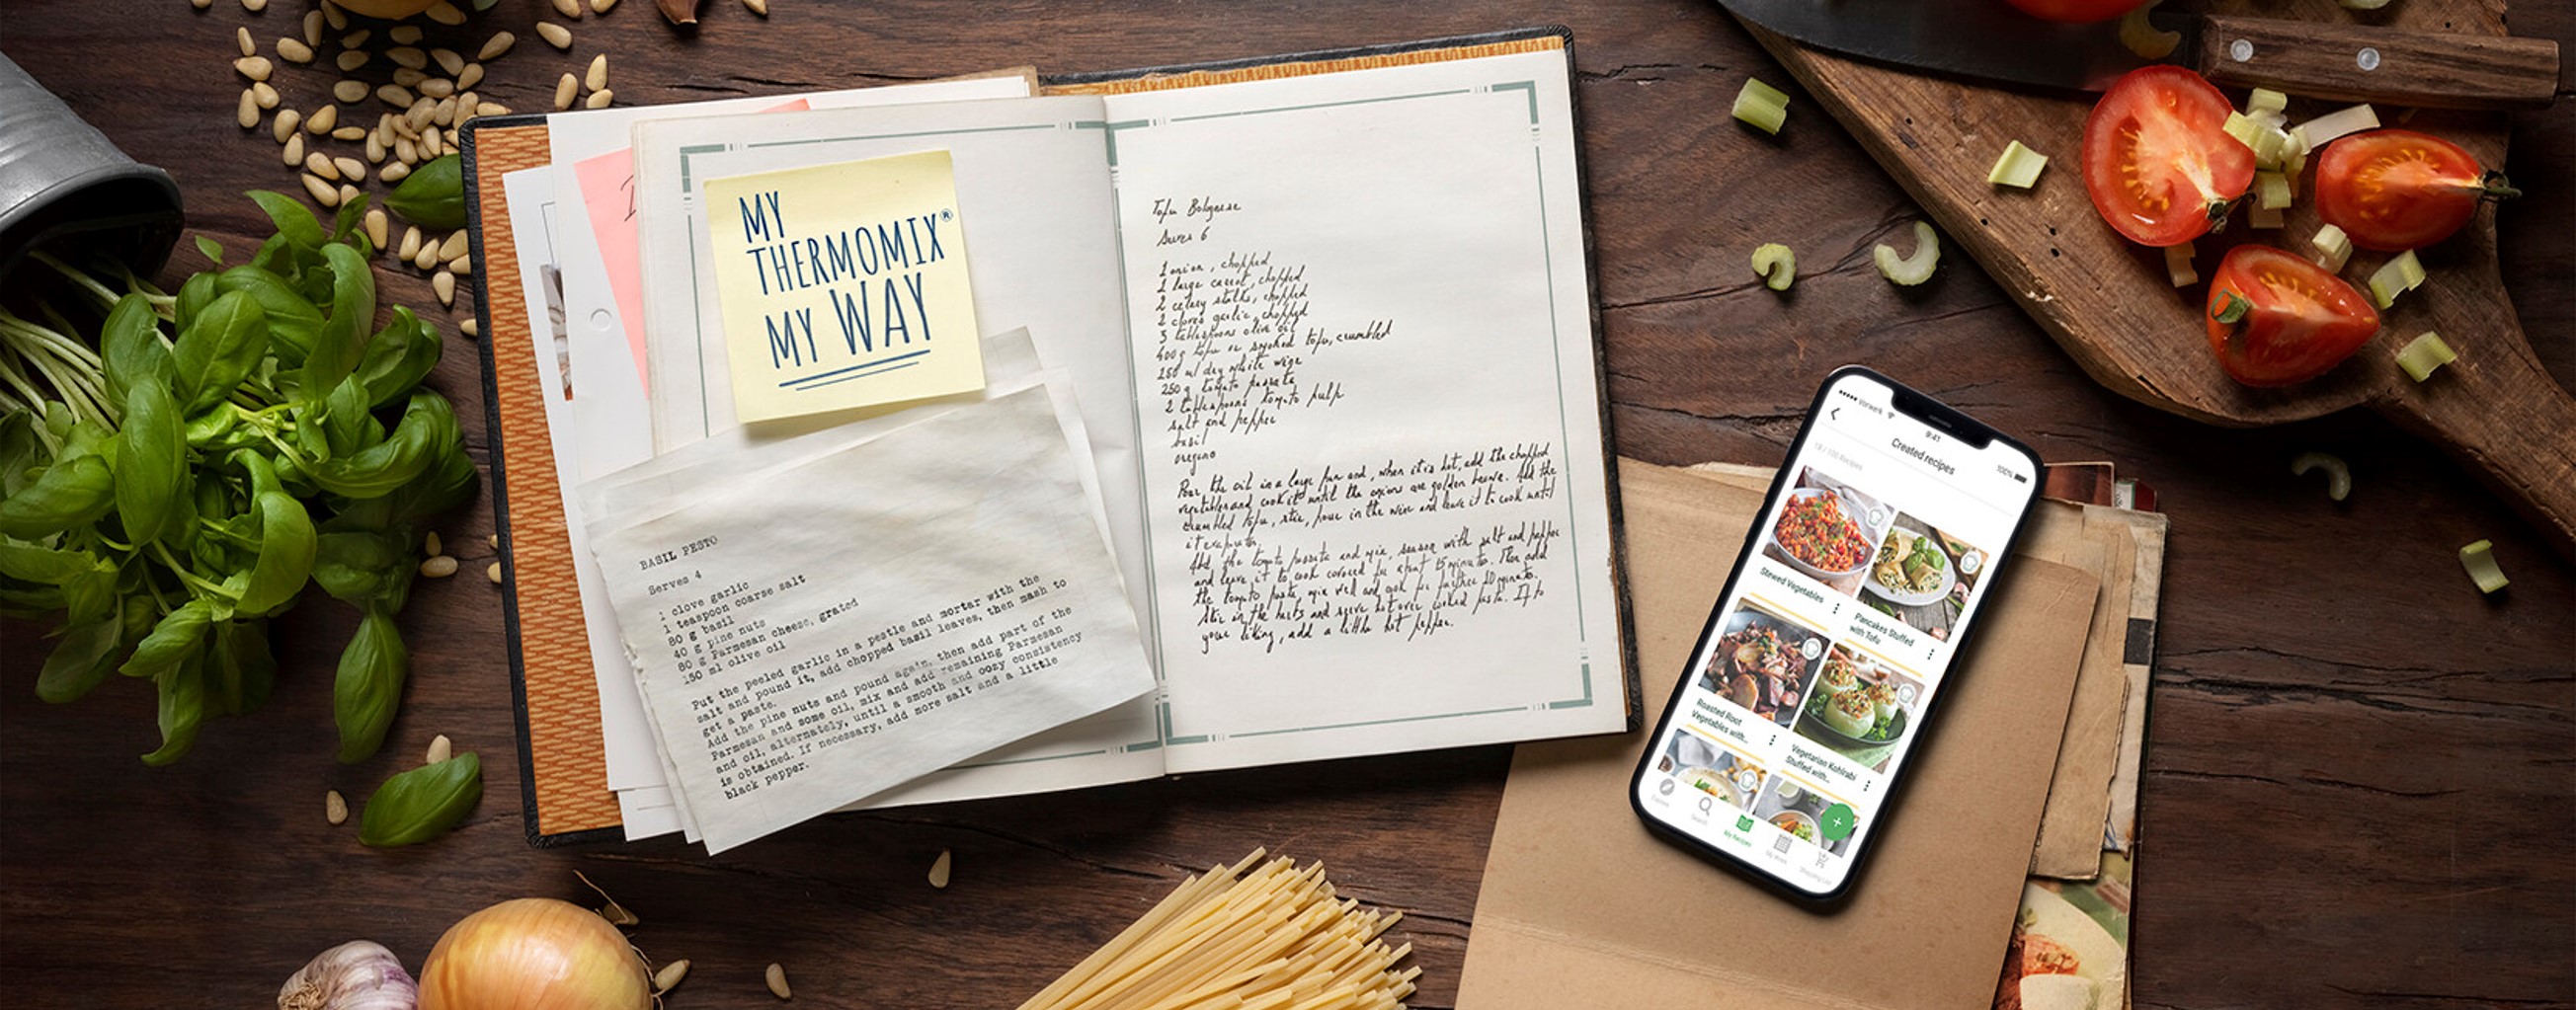 MY
THERMOMIX®
MY WAY
BASIL PESTO
Serves 4
1 clove garlic
1 teaspoon coarse salt
80 g basil
40 g pine nuts
80 g Parmesan cheese, grated
150 ml olive oil
Put the peeled garlic in a pestle and mortar with the
salt and pound it, add chopped basil leaves, then mash to
get a paste.
Add the pine nuts and pound again, then add part of the
Parmesan and some oil, mix and add remaining Parmesan
and oil, alternately, until a smooth and oozy consistency
is obtained. If necessary, add more salt and a little
black pepper.
Tofu Bolognese
Serves 6
1 onion, chopped
1 large carrot, chopped
2 celery stalks, chopped
2 cloves garlic, chopped
3 tablespoons olive oil
400 g tofu or smoked tofu, crumbled
250 ml dry white wine
250 g tomato passata
2 tablespoons tomato pulp
salt and pepper
basil
oregano
Pour the oil in a large pan and, when it is hot, add the chopped
vegetables and cook it until the onions are golden brown. Add the
crumbled tofu, stir, pour in the wine and leave it to cook until
it evaporates.
Add the tomato passata and mix, season with salt and pepper
and leave it to cook covered for about 15 minutes. Then add
the tomato paste, mix well and cook for further 10 minutes.
Stir in the herbs and serve hot over cooked pasta. If to
your liking, add a little hot pepper.
Vorwerk
9:41
100%
Created recipes
Stewed Vegetables
Pancakes Stuffed
with Tofu
Roasted Root
Vegetables with...
Vegetarian Kohlrabi
Stuffed with...
Explore
Search
My Recipes
My Week
Shopping List